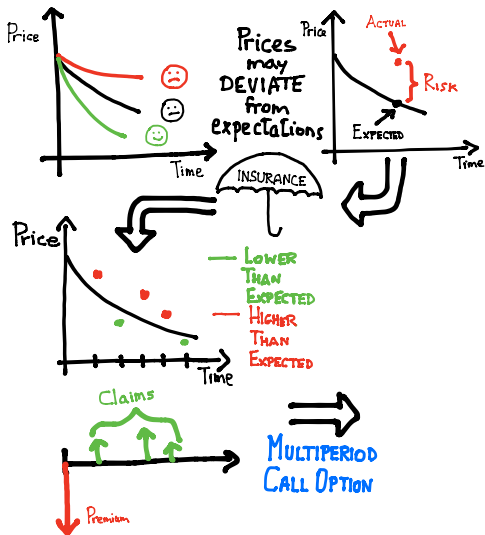 Price
Time
Prices
may
DEVIATE
from
expectations
Price
ACTUAL
RISK
EXPECTED
Time
INSURANCE
Price
Time
LOWER
THAN
EXPECTED
HIGHER
THAN
EXPECTED
Claims
Premium
MULTIPERIOD
CALL OPTION